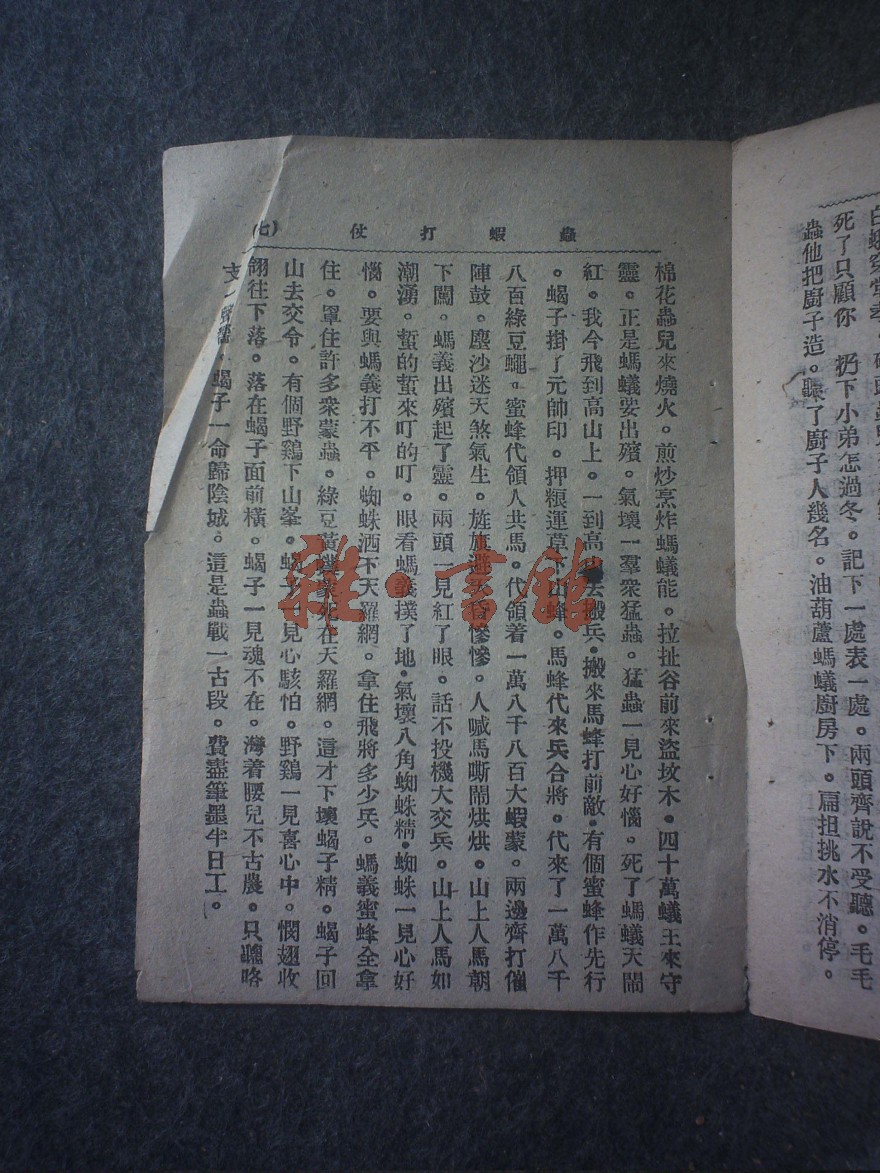 死了只顧你 扔下小弟怎過冬。記下一處表一處。兩頭齊說不受聽。毛毛
蟲他把廚子造。聽了廚子人幾名。油葫蘆螞蟻廚房下。扁担挑水不消停。
蟲蝦打仗 (七)
棉花蟲兒來燒火。煎炒烹炸螞蟻能。拉扯谷前來盜坟木。四十萬蟻王來守
靈。正是螞蟻要出殯。氣壞一羣衆猛蟲。猛蟲一見心好惱。死了螞蟻天鬧
紅。我今飛到高山上。一到高 去搬兵。搬來馬蜂打前敵。有個蜜蜂作先行
。蝎子掛了元帥印。押粮運草 山蜂。馬蜂代來兵合將。代來了一萬八千
八百綠豆蠅。蜜蜂代領人共馬。代領着一萬八千八百大蝦蒙。兩邊齊打催
陣鼓。塵沙迷天煞氣生。旌旗 慘慘。人喊馬嘶鬧烘烘。山上人馬朝
下闖。螞義出殯起了靈。兩頭一見紅了眼。話不投機大交兵。山上人馬如
潮湧。蜇的蜇來叮的叮。眼看螞義撲了地。氣壞八角蜘蛛精。蜘蛛一見心好
惱。要與螞義打不平。蜘蛛洒下天羅網。拿住飛將多少兵。螞義蜜蜂全拿
住。罩住許多衆蒙蟲。綠豆 衆死在天羅網。這才下壞蝎子精。蝎子回
山去交令。有個野鷄下山峯。蝎子一見心駭怕。野鷄一見喜心中。憫翅收
翎往下落。落在蝎子面前橫。蝎子一見魂不在。灣着腰兒不古農。只聽咯
蝎子一命歸陰城。這是蟲戰一古段。費盡筆墨半日工。
雜·書館